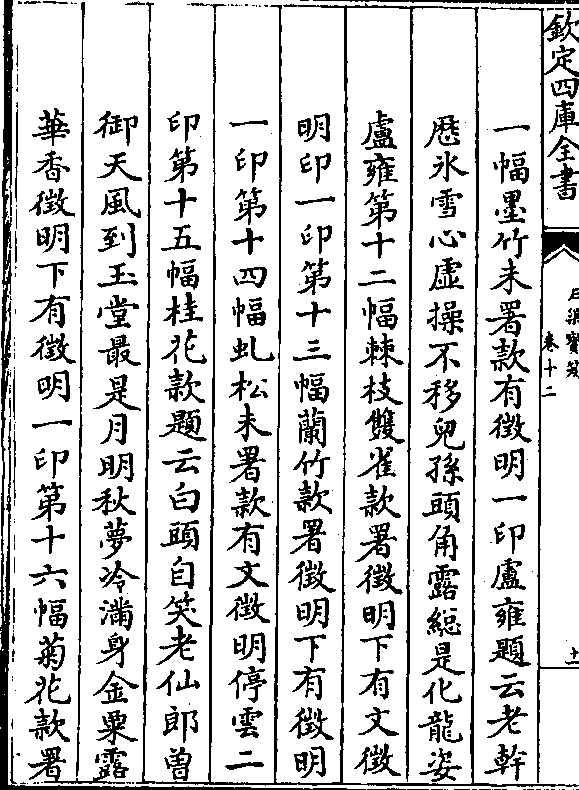 欽定四庫全書
石渠寶笈
卷十二
十一
一幅墨竹未署款有徵明一印盧雍題云老幹
歴氷雪心虚操不移兒孫頭角露緫是化龍姿
盧雍第十二幅棘枝雙雀款署徵明下有文徵
明印一印第十三幅蘭竹款署徵明下有徵明
一印第十四幅虬松未署款有文徵明停雲二
印第十五幅桂花款題云白頭自笑老仙郎曽
御天風到玉堂最是月明秋夢冷滿身金粟露
華香徵明下有徵明一印第十六幅菊花款署